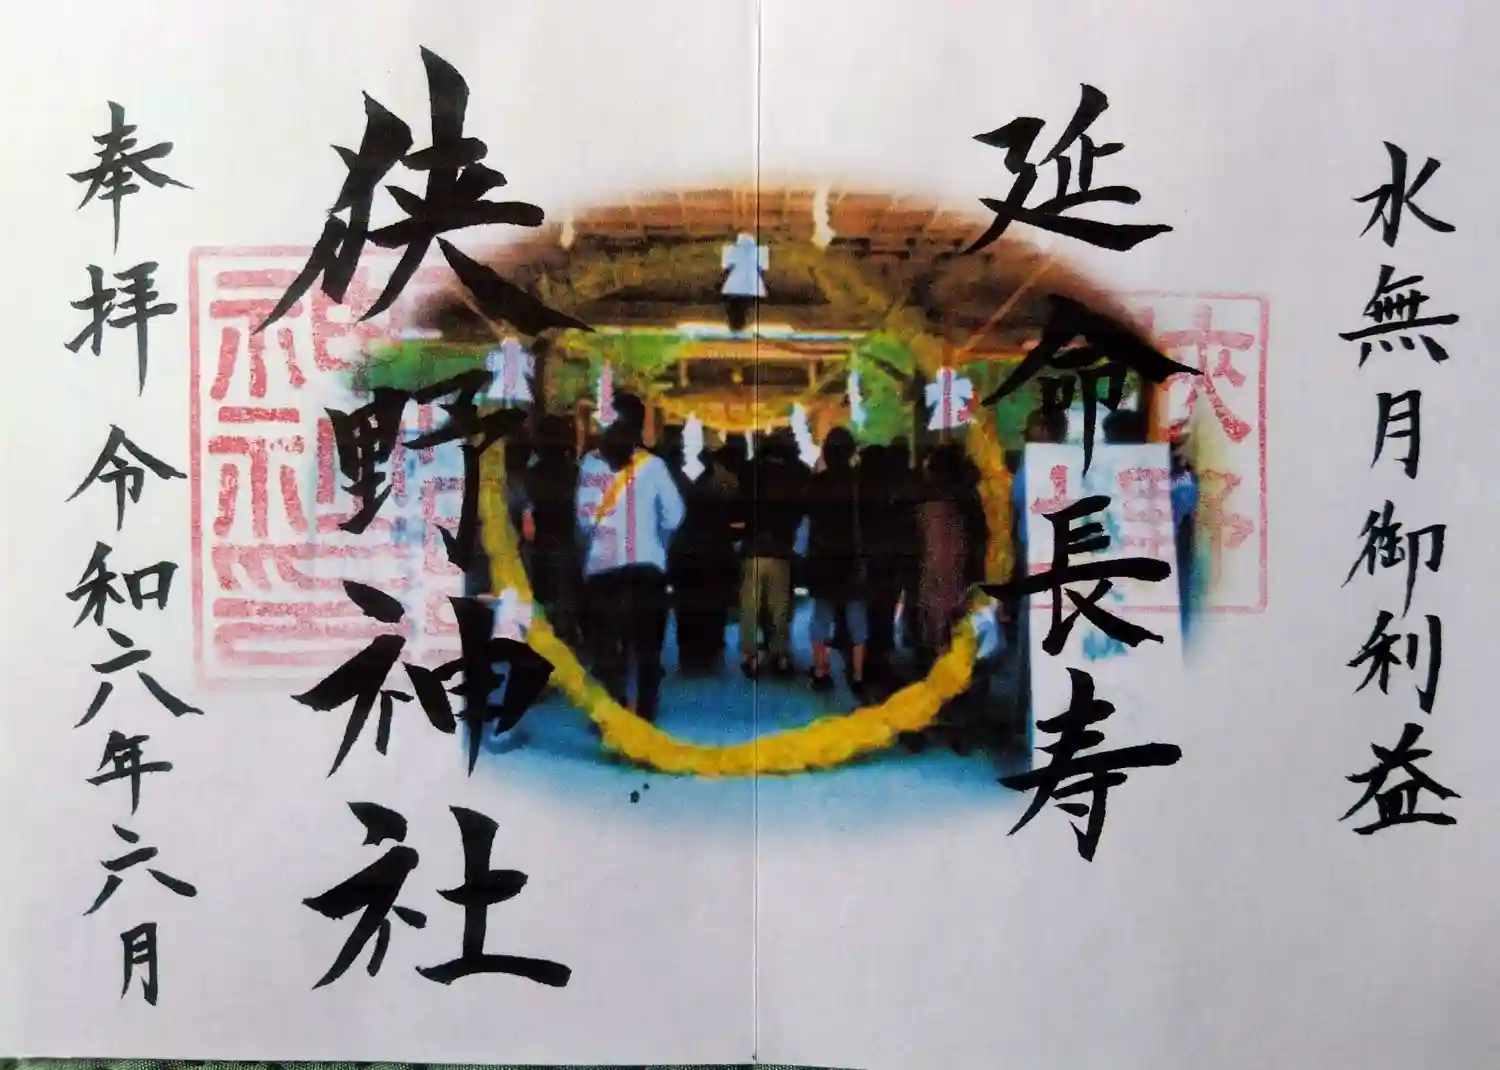 水無月御利益
延命長寿
狭野神社
奉拝 令和六年六月